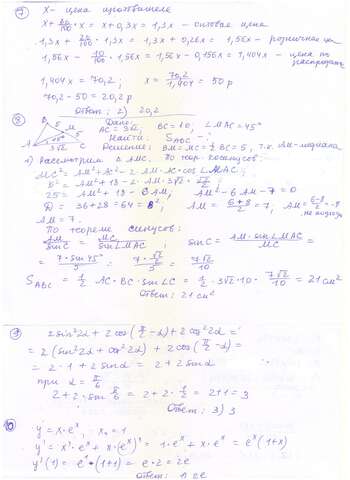 7) x - цена производителя
x + 30/100 · x = x + 0,3x = 1,3x - оптовая цена
1,3x + 20/100 · 1,3x = 1,3x + 0,26x = 1,56x - розничная цена
1,56x - 10/100 · 1,56x = 1,56x - 0,156x = 1,404x - цена на распродаже
1,404x = 70,2; x = 70,2/1,404 = 50 р
70,2 - 50 = 20,2 р
Ответ: 2) 20,2
8) Дано:
AC = 3√2, BC = 10, ∠MAC = 45°
Найти: S ABC - ?
Решение: BM = MC = ½ BC = 5, т.к. AM - медиана
1) Рассмотрим △ AMC. По теор. косинусов:
MC² = AM² + AC² - 2·AM·AC·cos∠MAC
5² = AM² + 18 - 2·AM·3√2·√2/2
25 = AM² + 18 - 6AM; AM² - 6AM - 7 = 0
D = 36 + 28 = 64 = 8²; AM = 6+8/2 = 7, AM = 6-8/2 = -1
не подход.
AM = 7.
По теореме синусов:
AM/sinC = MC/sin∠MAC; sinC = AM·sin∠MAC/MC =
= 7·sin45°/5 = 7·√2/2/5 = 7√2/10
S ABC = ½ AC·BC·sin∠C = ½·3√2·10·7√2/10 = 21 см²
Ответ: 21 см²
9) 2sin²2α + 2cos(π/2 - α) + 2cos²2α =
= 2(sin²2α + cos²2α) + 2cos(π/2 - α) =
= 2·1 + 2sinα = 2 + 2sinα
при α = π/6
2 + 2·sin π/6 = 2 + 2·½ = 2+1 = 3
Ответ: 3) 3
10) y = x·eˣ, x₀ = 1
y' = x'·eˣ + x·(eˣ)' = 1·eˣ + x·eˣ = eˣ(1+x)
y'(1) = e¹·(1+1) = e·2 = 2e
Ответ: 2e